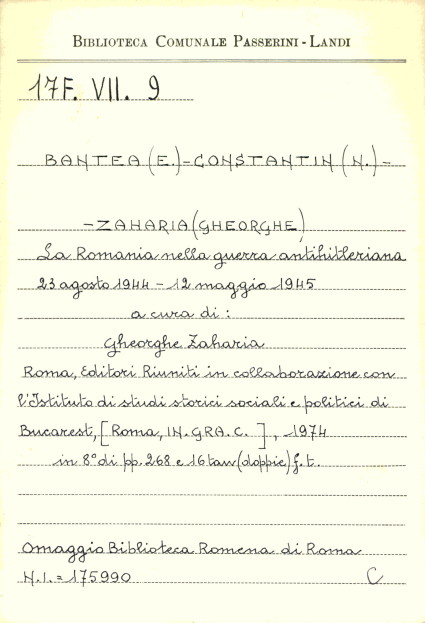 BIBLIOTECA COMUNALE PASSERINI - LANDI
17F. VII. 9
BANTEA (E.) - CONSTANTIN (N.) -
- ZAHARIA (GHEORGHE)
La Romania nella guerra antihitleriana
23 agosto 1944 - 12 maggio 1945
a cura di :
Gheorghe Zaharia
Roma, Editori Riuniti in collaborazione con
l'Istituto di studi storici sociali e politici di
Bucarest, [Roma, IN. GRA. C. ] , 1974
in 8° di pp. 268 e 16 tav (doppie) f. t.
Omaggio Biblioteca Romena di Roma
N.I. = 175990 C